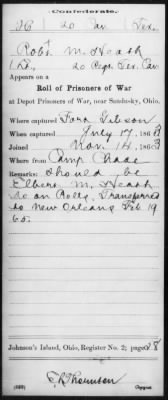 Confederate.
H | 20 Cav | Tex.
Robt M. Heath
Lt., 20 Regt. Tex. Cav
Appears on a
Roll of Prisoners of War
at Depot Prisoners of War, near Sandusky, Ohio.
Where captured Fort Gibson
When captured July 17, 1863
Joined Nov. 14, 1863
Where from Camp Chase
Remarks: Should be
Elbert M. Heath
so on Rolls. Transferred
to New Orleans Feb 19
65.
Johnson's Island, Ohio, Register No. 2; page 28
(639) Copyist.